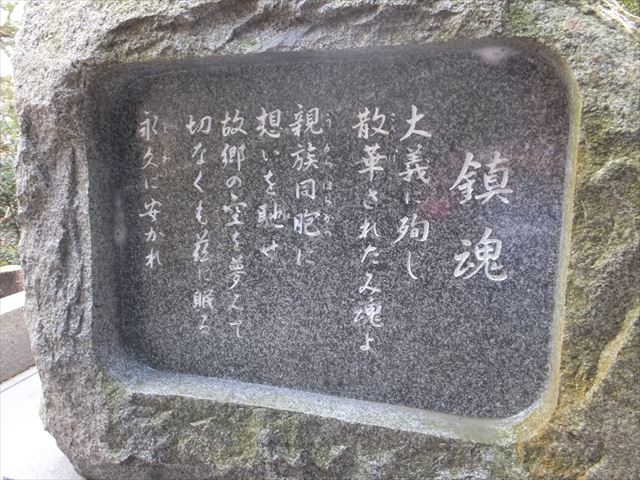 鎮魂
大義に殉し
散華されたみ魂よ
親族同胞に
想いを馳せ
故郷の空を夢みて
切なくも茲に眠る
永久に安かれ